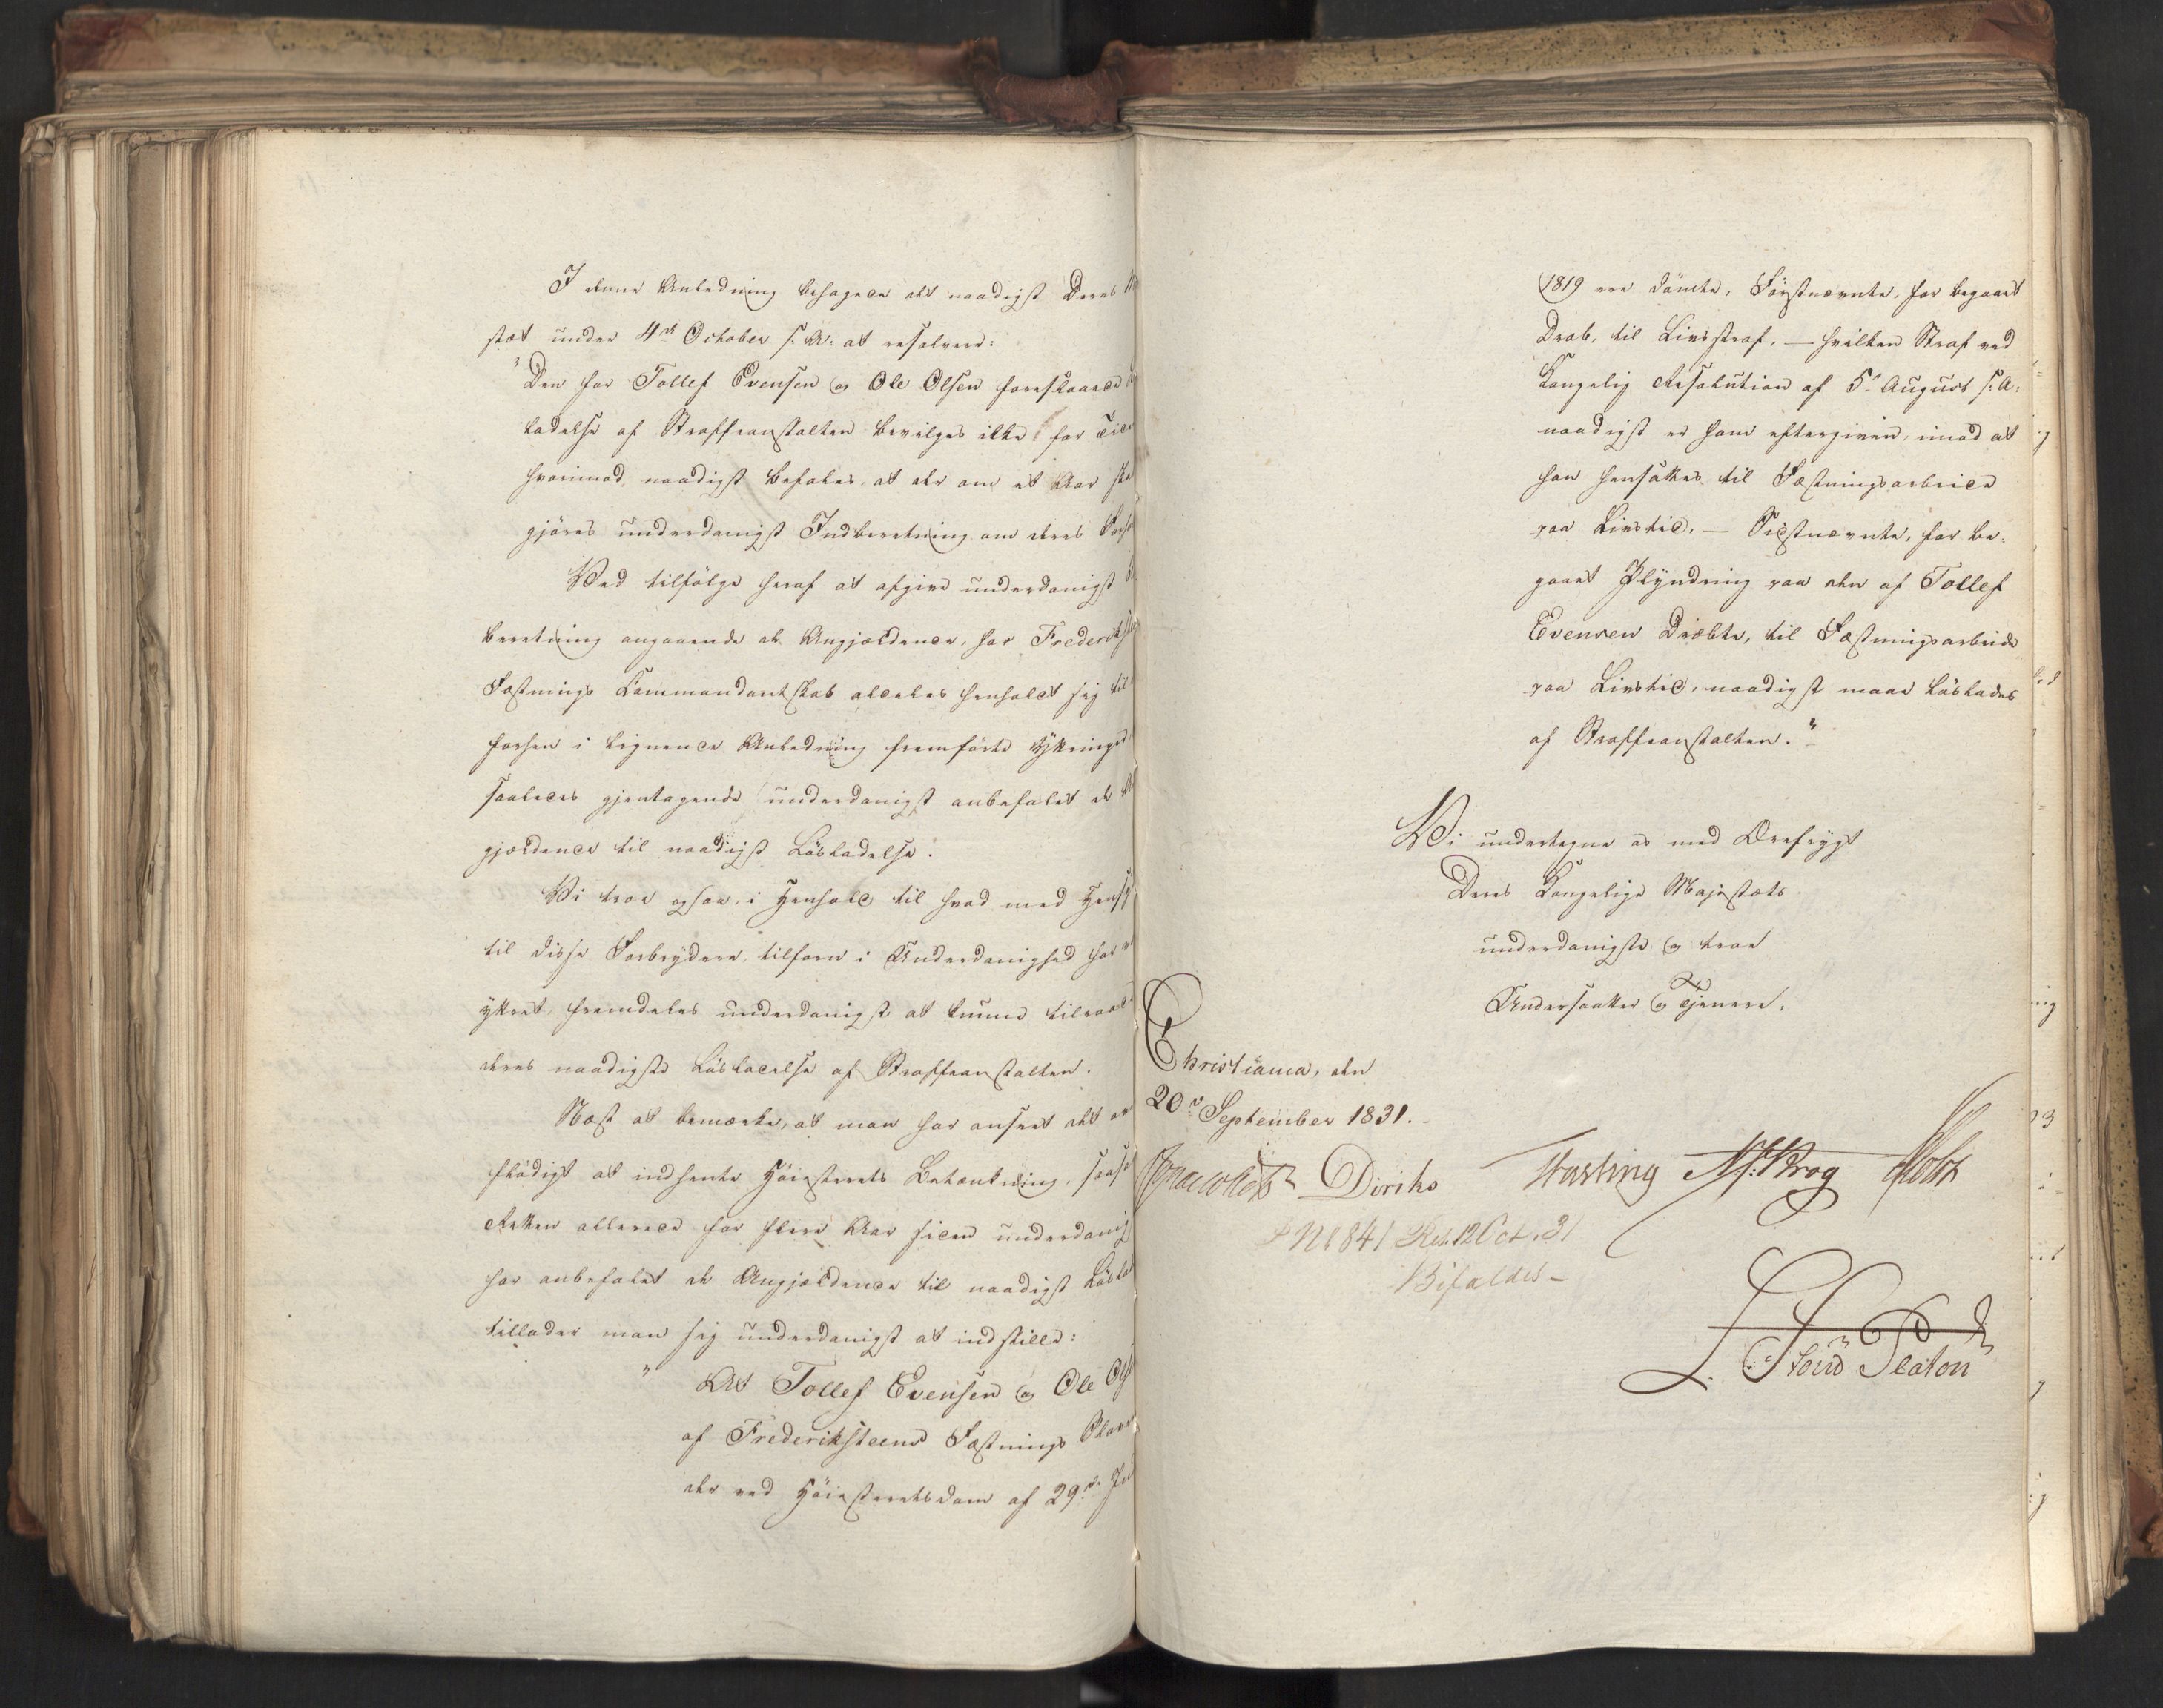 I denne Anledning behagede det naadigst Deres M
stæt under 4de October f. A. at resolvere:
"Den for Tollef Evensen og Ole Olsen foreslaaede
ladelse af Straffeanstalten bevilges ikke for Tide
hvorimod naadigst befales, at der om et Aar ska
gjöres underdanigst Indberetning om deres Forho
Ved tilfölge heraf at afgive underdanigst
beretning angaaende de Angjældende, har Frederikste
Fæstnings Commandantskab aldeles henholdt sig til
forhen i lignende Anledning fremförte Yttringer
saaledes gjentagende underdanigst anbefalet de A
gjældende til naadigst Lösladelse.
Vi troe ogsaa, i Henhold til hvad med Hensy
til disse Forbrydere, tilforn i Underdanighed har v
yttret, fremdeles underdanigst at kunne tilraade
deres naadigste Lösladelse af Straffeanstalten.
Næst at bemærke, at man har anseet det ov
flödigt at indhente Höiesterets Betænkning, saaso
Retten allerede for flere Aar siden underdanig
har anbefalet de Angjældende til naadigst Löslad
tillader man sig underdanigst at indstille:
"At Tollef Evensen og Ole Ols
af Frederiksteens Fæstnings Slave
der ved Höiesteretsdom af 29de Ju
1819 ere dömte, Förstnævnte, for begaaet
Drab, til Livsstraf, — hvilken Straf ved
Kongelig Resolution af 5te August s. A.
naadigst er ham eftergiven, imod at
han hensættes til Fæstningsarbeide
paa Livstid, — Sidstnævnte, for be-
gaaet Plyndring paa den af Tollef
Evensen Dræbte, til Fæstningsarbeide
paa Livstid, naadigst maae löslades
af Straffeanstalten."
Vi undertegne os med Ærefrygt
Deres Kongelige Majestæts
underdanigste og troe
Undersaatter og Tjenere.
Christiania, den
20de September 1831.
Jonas Collett Diriks Fasting N. Krog Holst
No 841 Res. 12 Oct. 31
Bifaldes –
L. Stoud Platou